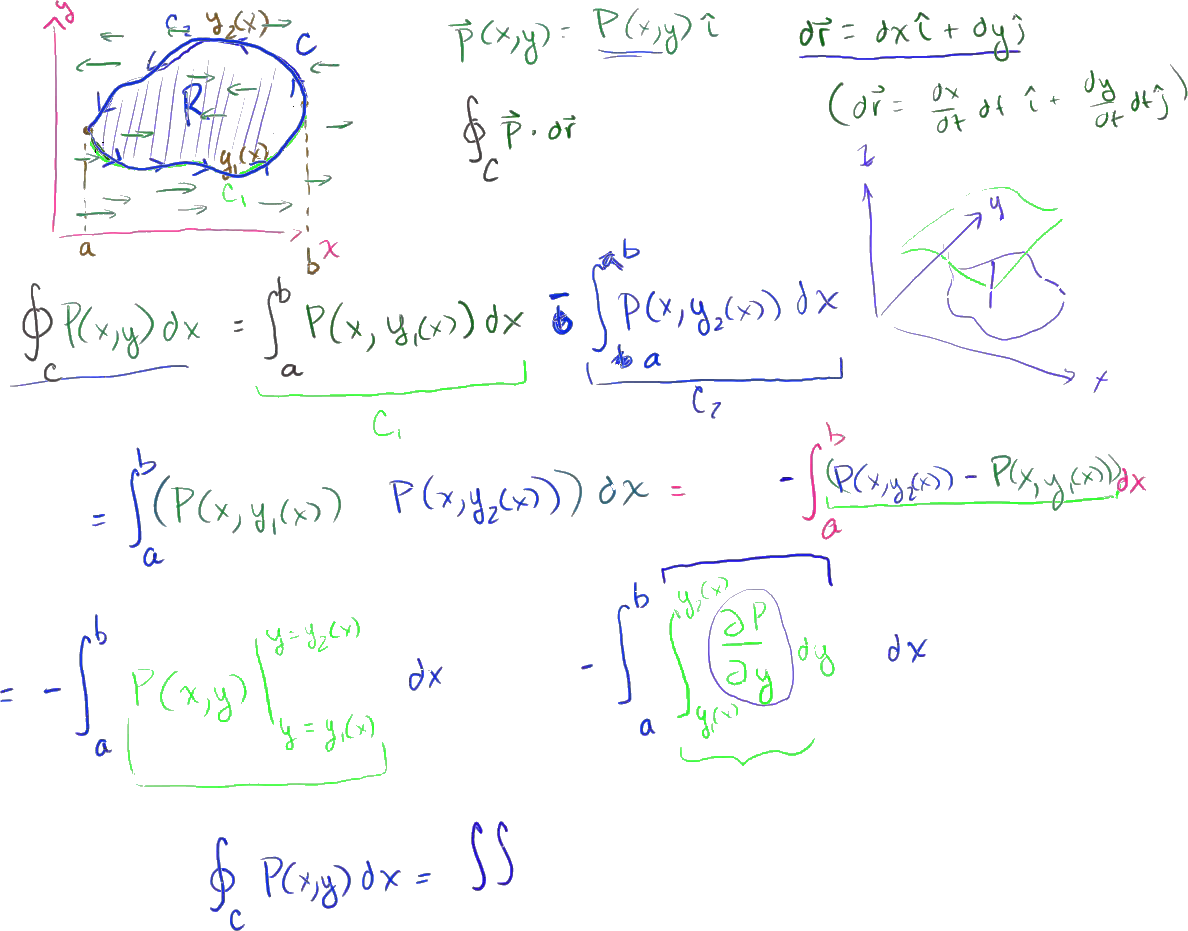 y
C₂ y₂(x) C
R
y₁(x)
C₁
a b x
P⃗(x,y) = P(x,y) î
dr⃗ = dx î + dy ĵ
∮_C P⃗ · dr⃗
(dr⃗ = dx/dt dt î + dy/dt dt ĵ)
z
y
x
∮_C P(x,y) dx = ∫_a^b P(x, y₁(x)) dx - ∫_a^b P(x, y₂(x)) dx
C₁ C₂
= ∫_a^b (P(x, y₁(x)) P(x, y₂(x))) dx = - ∫_a^b (P(x, y₂(x)) - P(x, y₁(x))) dx
= - ∫_a^b P(x,y) |_{y = y₁(x)}^{y = y₂(x)} dx - ∫_a^b ∫_{y₁(x)}^{y₂(x)} ∂P/∂y dy dx
∮_C P(x,y) dx = ∬